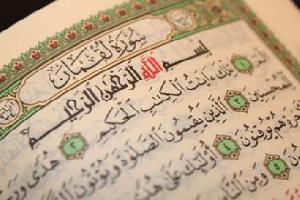 سُورَةُ لُقْمَان
بِسْمِ اللَّهِ الرَّحْمَٰنِ الرَّحِيمِ
١ تِلْكَ ءَايَٰتُ الْكِتَٰبِ الْحَكِيمِ ٢ هُدًى
لِّلْمُحْسِنِينَ ٣ الَّذِينَ يُقِيمُونَ الصَّلَوٰةَ وَيُؤْتُونَ
هُمْ يُوقِنُونَ ٤ أُولَٰئِكَ عَلَىٰ هُدًى
٥ وَمِنَ النَّاسِ